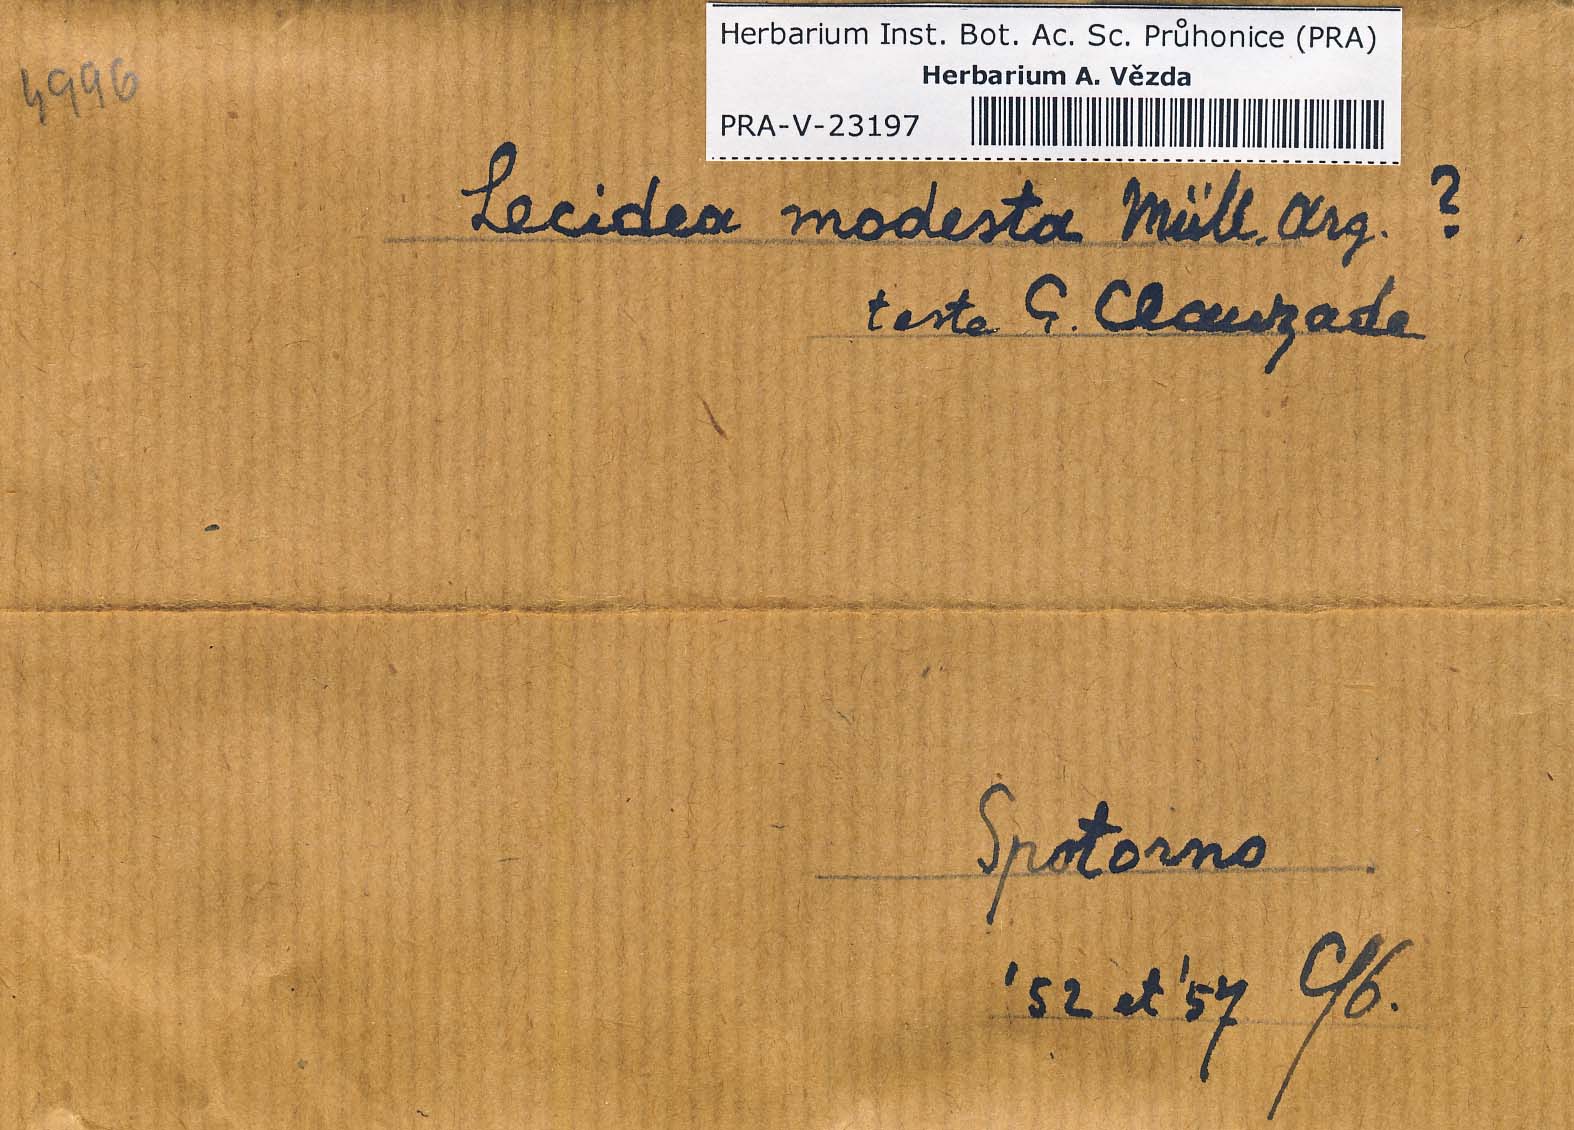 Herbarium Inst. Bot. Ac. Sc. Průhonice (PRA)
Herbarium A. Vězda
PRA-V-23197
4996
Lecidea modesta Müll. Arg. ?
teste G. Clauzade
Spotorno
'52 et '57